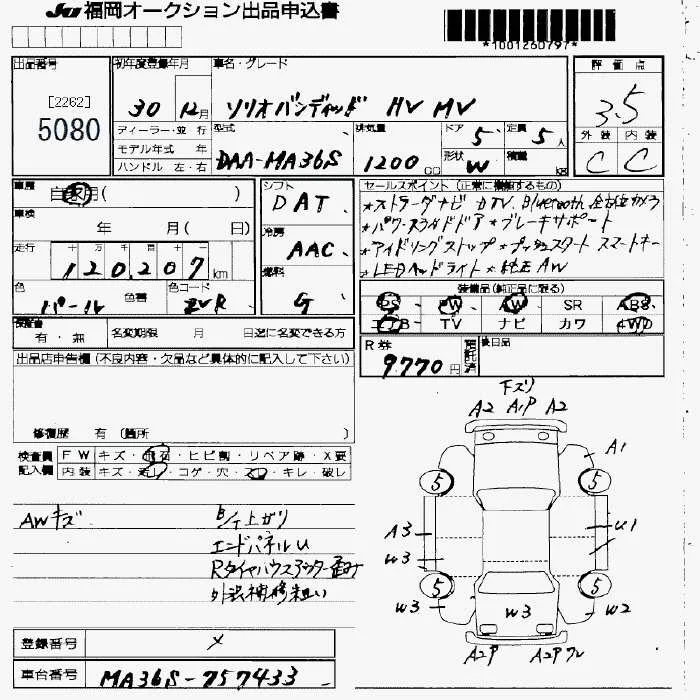 JU 福岡オークション出品申込書
*1001260797*
出品番号
[2262]
5080
初年度登録年月
30 12月
車名・グレード
ソリオバンディッド HV MV
評価点
3.5
外装 内装
C C
ディーラー・並行
モデル年式 年
ハンドル 左・右
型式
DAA-MA36S
排気量
1200 CC
ドア 5
定員 5人
形状 W
積載 kg
車歴
自家用( )
車検
年 月( 日)
走行
十 万 千 百 十
120,207 km
色
パール
色替
色コード
ZVR
シフト
DAT
冷房
AAC
燃料
G
セールスポイント (正常に機能するもの)
*ストラーダナビ DTV. Bluetooth 全方位カメラ
*パワースライドドア *ブレーキサポート
*アイドリングストップ *プッシュスタート スマートキー
*LEDヘッドライト *純正AW
装備品(純正品に限る)
PS PW AW SR ABS
エアB TV ナビ カワ 4WD
検査書
有・無
名変期限 月 日迄に名変できる方
R券
9,770円
預託済
後日品
出品店申告欄(不良内容・欠品など具体的に記入して下さい)
修復歴 有 (箇所 )
検査員記入欄
FW キズ・飛石・ヒビ割・リペア跡・X要
内装 キズ・汚レ・コゲ・穴・スレ・キレ・破レ
AWキズ
シート上ガリ
エンドパネルU
Rタイヤハウスアウター歪み
外装補修粗い
下ズリ
A2 A1P A2
A1
5 5
A3
U1
W3
5 5
W3
W3
W2
A2P A2Pワレ
登録番号
メ
車台番号
MA36S-757433